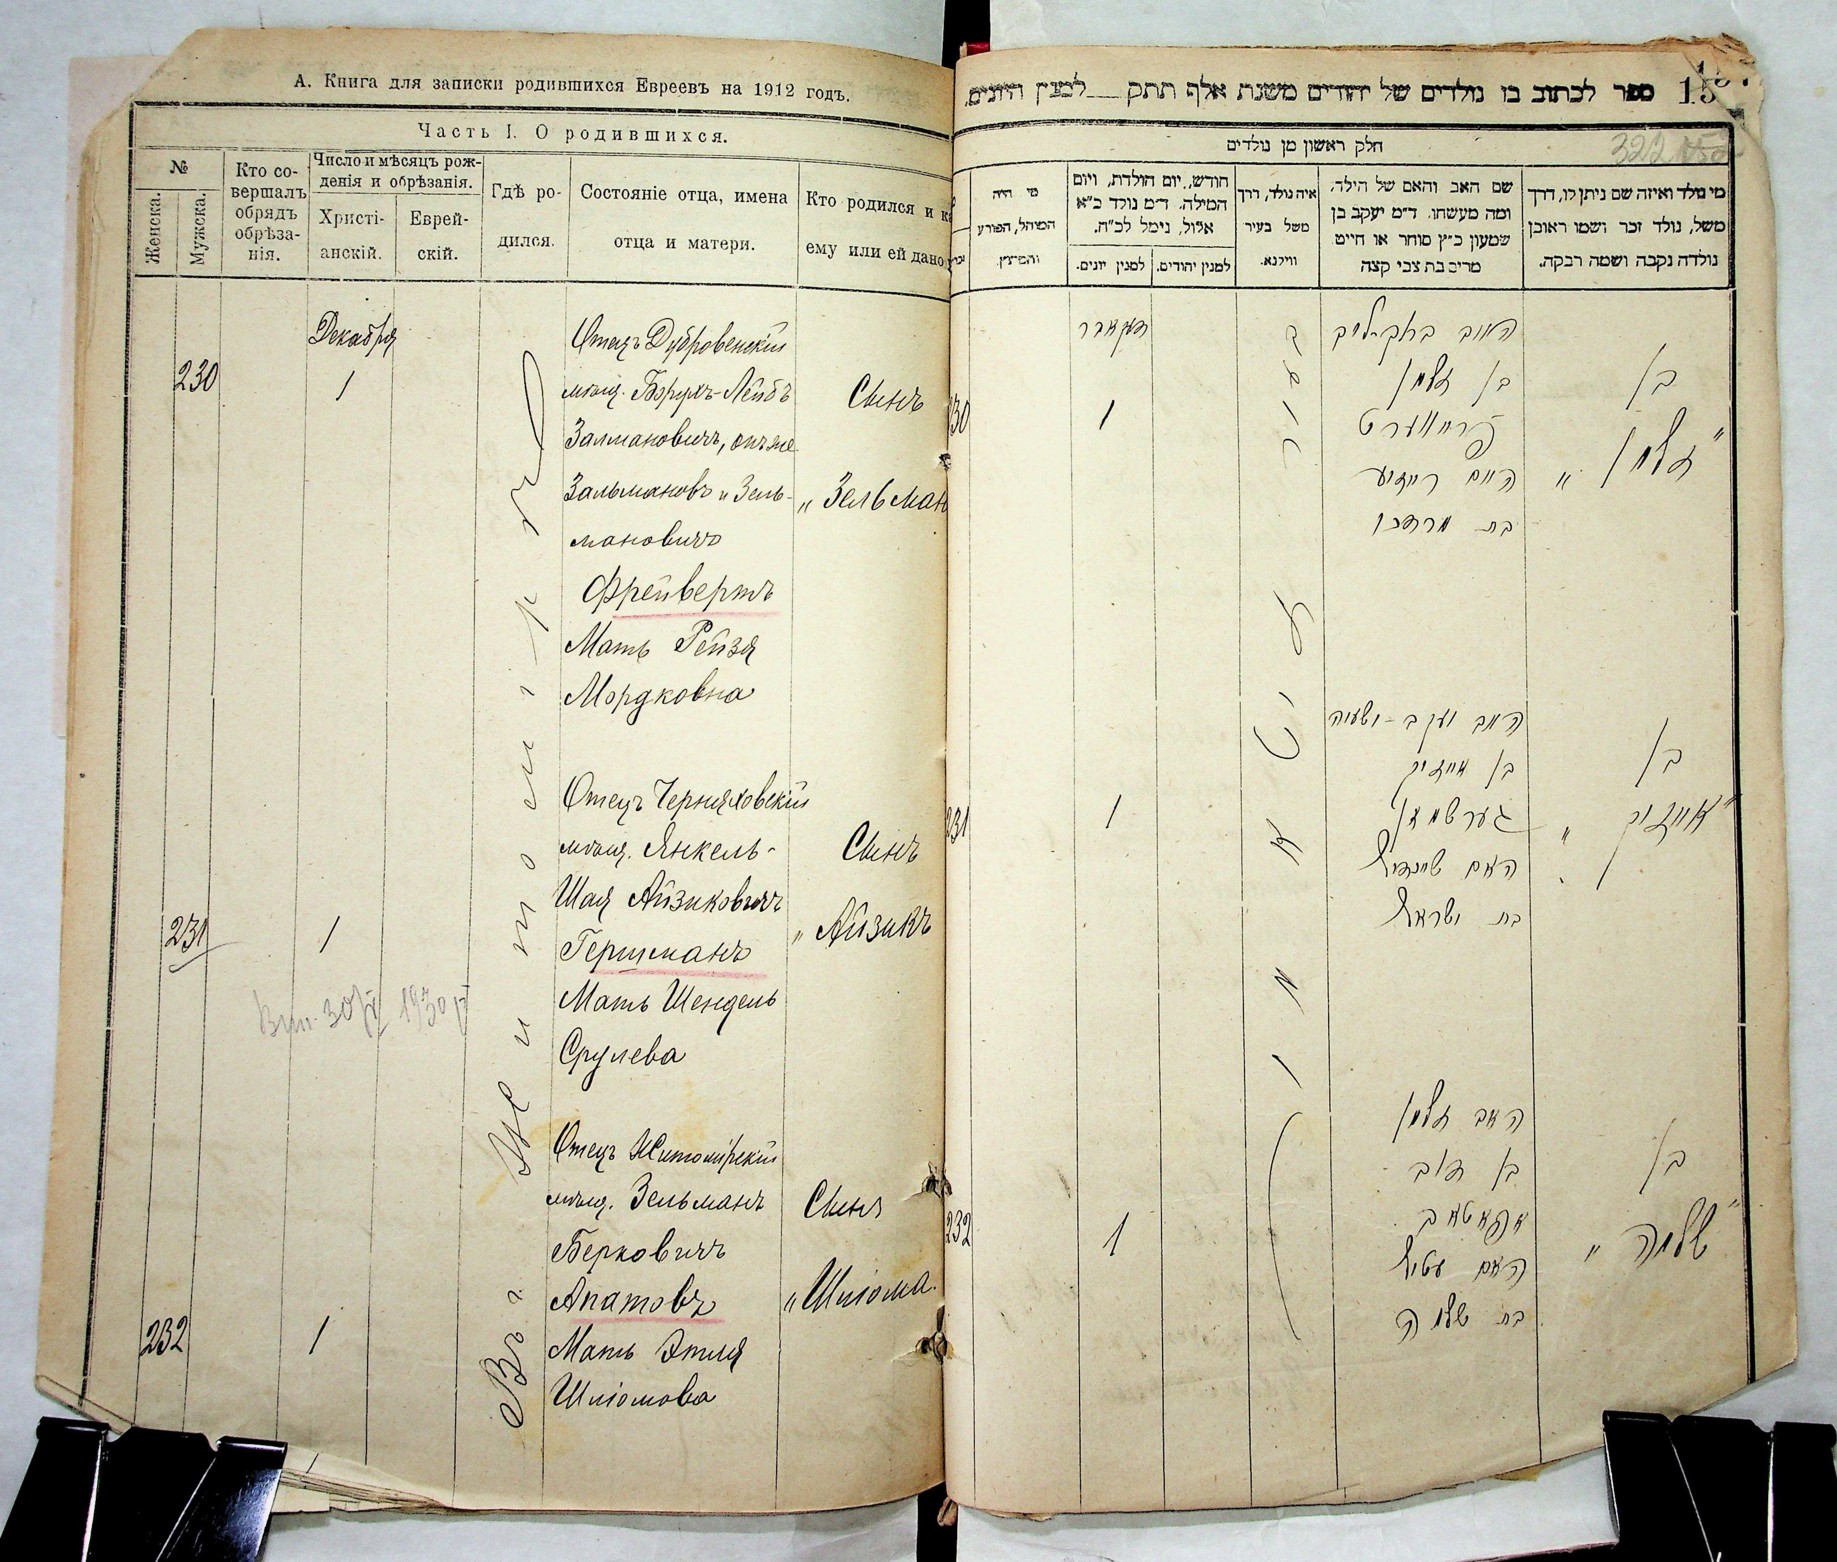 А. Книга для записки родившихся Евреевъ на 1912 годъ.
Часть I. О родившихся.
№
Женска.
Мужска.
Кто со-
вершалъ
обрядъ
обрѣза-
нія.
Число и мѣсяцъ рож-
денія и обрѣзанія.
Христі-
анскій.
Еврей-
скій.
Гдѣ ро-
дился.
Состояніе отца, имена
отца и матери.
Кто родился и ка
ему или ей дано
Декабря
230
1
Въ г. Житомірѣ
Отецъ Дубровенскій
мѣщ. Борухъ-Лейбъ
Залмановичъ, онъ же
Зальмановъ и Зель-
мановичъ
Фрейвертъ
Мать Рейзя
Мордковна
Сынъ
„Зельман
Отецъ Черняховскій
мѣщ. Янкель-
Шая Айзиковичъ
Гершманъ
Мать Шендель
Срулева
231
1
Сынъ
„Айзикъ
1930 г
Отецъ Житомірскій
мѣщ. Зельманъ
Берковичъ
Апатовъ
Мать Этля
Шліомова
232
1
Сынъ
„Шліома.
ספר לכתוב בו נולדים של יהודים משנת אלף תתק___למנין היונים.
15
322
חלק ראשון מן נולדים
מי היה
המוהל, הפורע
והמוצץ.
חודש, יום הולדת, ויום
המילה. ד״מ נולד כ״א
אלול, נימל לכ״ח.
למנין יונים.
למנין יהודים.
איה נולד, דרך
משל בעיר
ווילנא.
שם האב והאם של הילד,
ומה מעשהו. ד״מ יעקב בן
שמעון כ״ץ סוחר או חייט
מרים בת צבי קצה
מי נולד ואיזה שם ניתן לו, דרך
משל, נולד זכר ושמו ראובן
נולדה נקבה ושמה רבקה.
דעקאבר
30
1
בעיר
זיטאמיר
בן זלמן
פרייווערט
האם רייזיע
בת מרדכי
בן
„זלמן„
231
1
האב יעקב-ישעיה
בן אייזיק
גערשמאן
האם שיינדיל
בת ישראל
בן
„אייזיק„
232
1
האב זלמן
בן דוב
אפאטאב
האם עטיל
בת שלמה
בן
„שלמה„